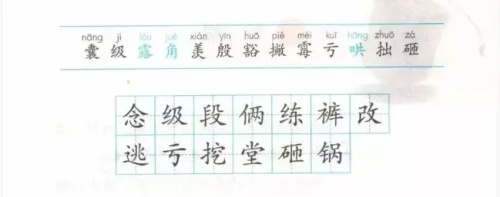 nāng jí lòu jué xiàn yīn huō piě méi kuī hōng zhuō zá
囊 级 露 角 羡 殷 豁 撇 霉 亏 哄 拙 砸
念级段俩练裤改
逃亏挖堂砸锅